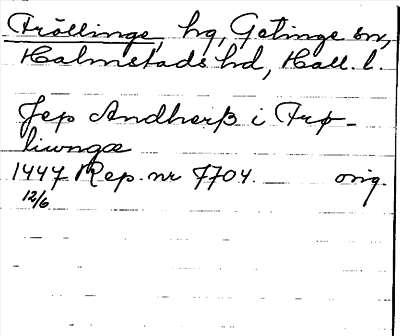 Fröllinge, hg, Getinge sn,
Halmstads hd, Hall. l.
Jep Andherß i Frø-
liwngæ
1447 Rep. nr 7704. orig.
12/6